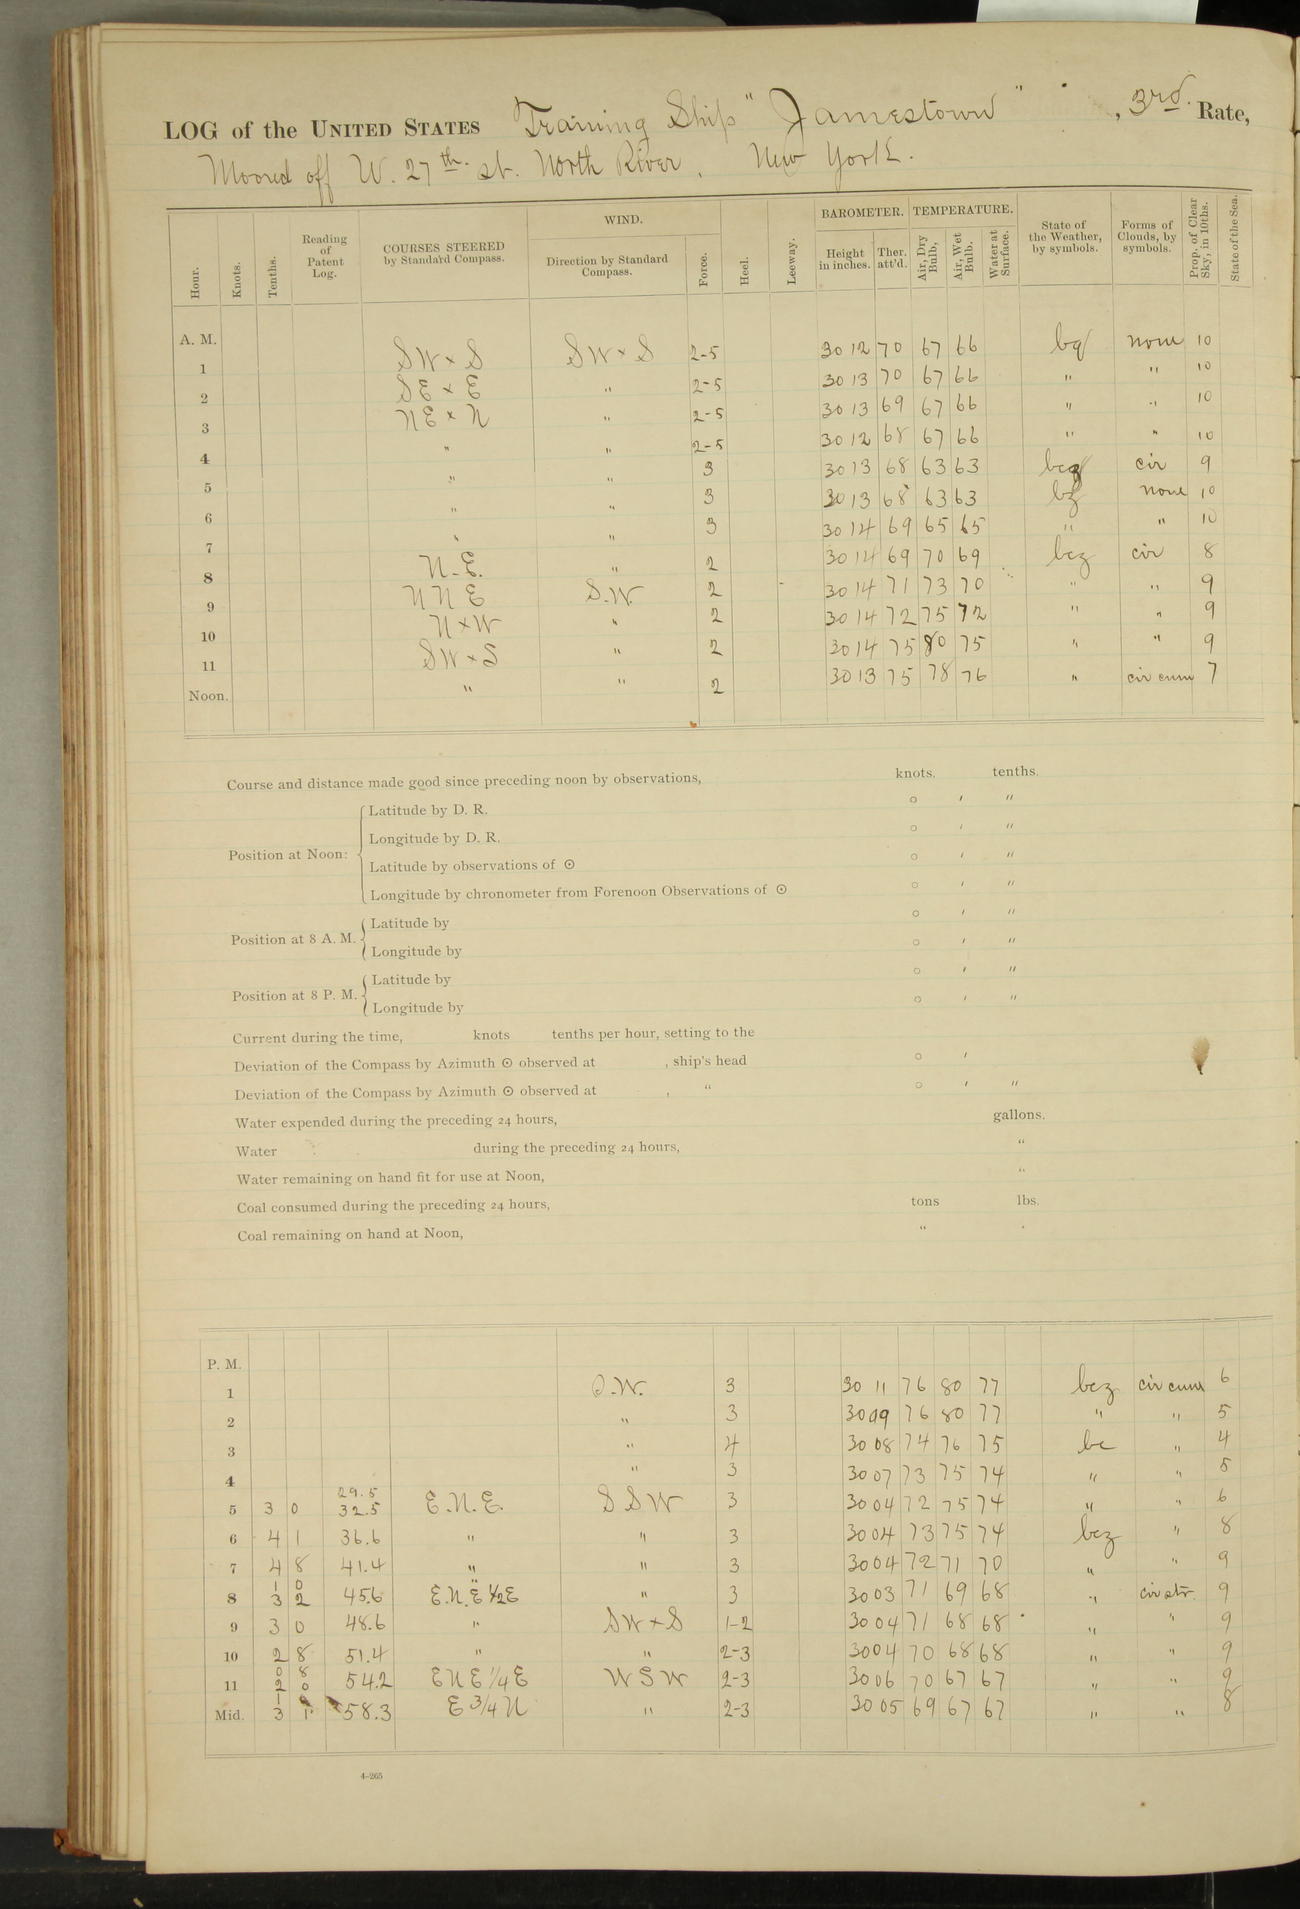 LOG of the UNITED STATES Training Ship "Jamestown", 3rd. Rate,
Moored off W. 27th. st. North River, New York.
Hour. Knots. Tenths. Reading of Patent Log. COURSES STEERED by Standard Compass. WIND. Direction by Standard Compass. Force. Heel. Leeway. BAROMETER. Height in inches. Ther. att'd. TEMPERATURE. Air, Dry Bulb, Air, Wet Bulb. Water at Surface. State of the Weather, by symbols. Forms of Clouds, by symbols. Prop. of Clear Sky, in 10ths. State of the Sea.
A. M.
1 SW x S SW x S 2-5 30 12 70 67 66 bq none 10
2 SE x E " 2-5 30 13 70 67 66 " " 10
3 NE x N " 2-5 30 13 69 67 66 " " 10
4 " " 2-5 30 12 68 67 66 " " 10
5 " " 3 30 13 68 63 63 cir 9
6 " " 3 30 13 68 63 63 bz none 10
7 " " 3 30 14 69 65 65 " " 10
8 N.E. " 2 30 14 69 70 69 bcz cir 8
9 NNE S.W. 2 30 14 71 73 70 " " 9
10 N x W " 2 30 14 72 75 72 " " 9
11 SW x S " 2 30 14 75 80 75 " " 9
Noon. " " 2 30 13 75 78 76 " cir cum 7
Course and distance made good since preceding noon by observations, knots, tenths.
Position at Noon:
Latitude by D. R. ° ′ ″
Longitude by D. R. ° ′ ″
Latitude by observations of ☉ ° ′ ″
Longitude by chronometer from Forenoon Observations of ☉ ° ′ ″
Position at 8 A. M.
Latitude by ° ′ ″
Longitude by ° ′ ″
Position at 8 P. M.
Latitude by ° ′ ″
Longitude by ° ′ ″
Current during the time, knots tenths per hour, setting to the
Deviation of the Compass by Azimuth ☉ observed at , ship's head ° ′
Deviation of the Compass by Azimuth ☉ observed at , " ° ′ ″
Water expended during the preceding 24 hours, gallons.
Water during the preceding 24 hours, "
Water remaining on hand fit for use at Noon, "
Coal consumed during the preceding 24 hours, tons lbs.
Coal remaining on hand at Noon, "
P. M.
1 S.W. 3 30 11 76 80 77 bcz cir cum 6
2 " 3 30 09 76 80 77 " " 5
3 " 4 30 08 74 76 75 bc " 4
4 29.5 " 3 30 07 73 75 74 " " 5
5 3 0 32.5 E.N.E. SSW 3 30 04 72 75 74 " " 6
6 4 1 36.6 " " 3 30 04 73 75 74 bcz " 8
7 4 8 41.4 " " 3 30 04 72 71 70 " " 9
1 0
8 3 2 45.6 E.N.E ½E " 3 30 03 71 69 68 " cir str. 9
9 3 0 48.6 " SW x S 1-2 30 04 71 68 68 " " 9
10 2 8 51.4 " " 2-3 30 04 70 68 68 " " 9
0 8
11 2 0 54.2 ENE ¼ E WSW 2-3 30 06 70 67 67 " " 9
Mid. 3 1 58.3 E ¾ N " 2-3 30 05 69 67 67 " " 8
4-265